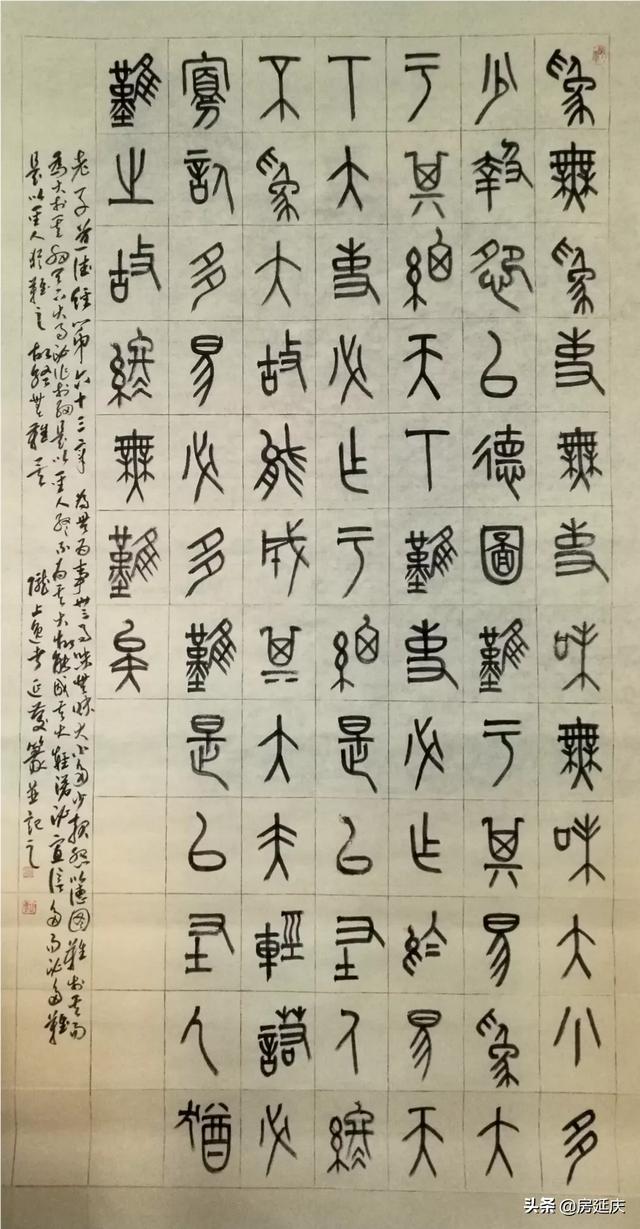 為無為事無事味無味大小多
少報怨以德圖難于其易為大
于其細天下難事必作於易天
下大事必作于細是以聖人終
不為大故能成其大夫輕諾必
寡信多易必多難是以聖人猶
難之故終無難矣
老子道德經第六十三章 為無為事無事味無味大小多少報怨以德圖難於其易
為大於其細天下大事必作於細是以聖人終不為其大故能成其大輕諾必寡信多易必多難
是以聖人猶難之故終無難矣 延慶篆並記之
头条 @房延庆